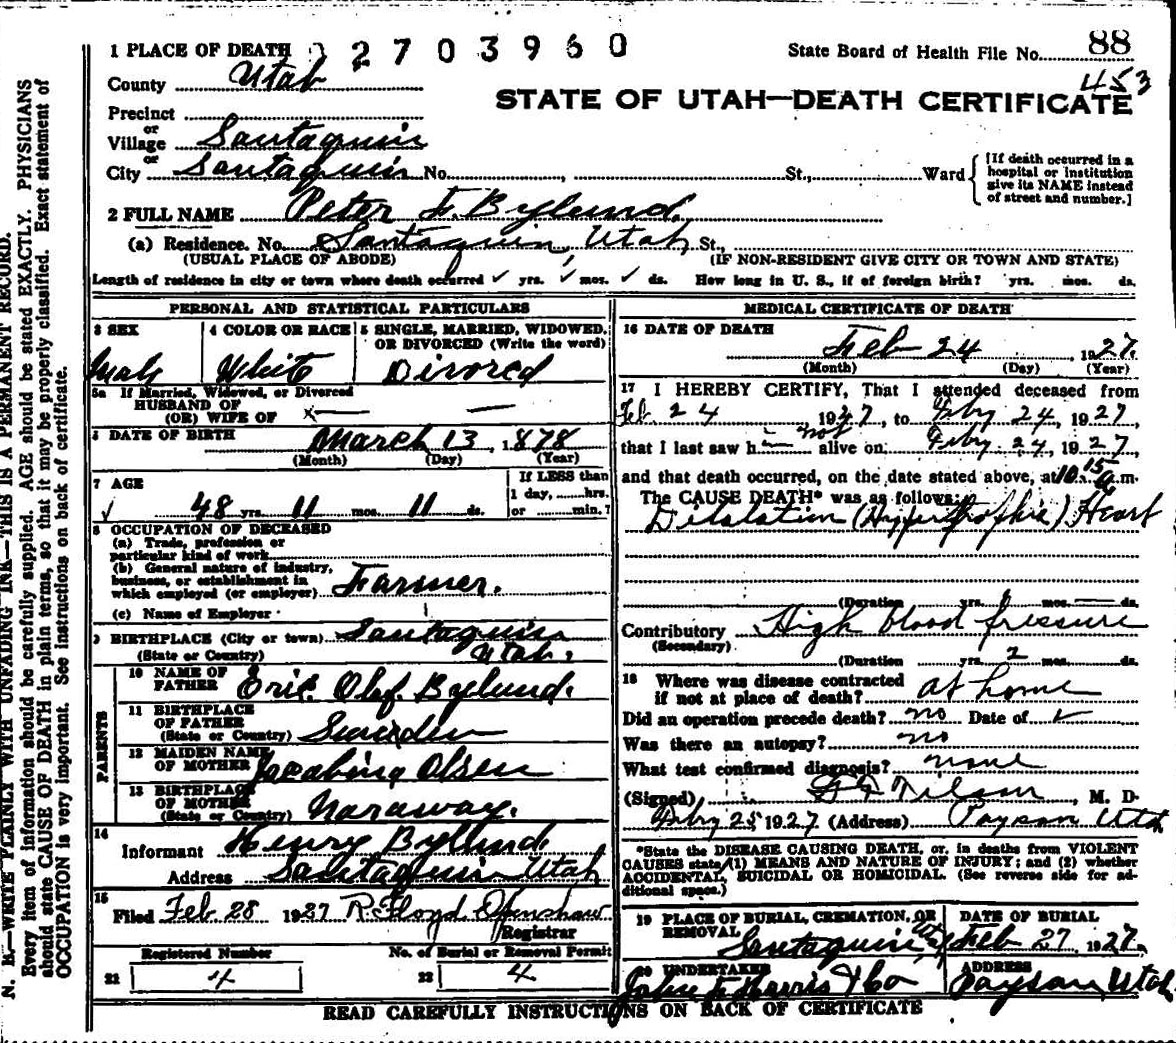 1 PLACE OF DEATH 2703960
State Board of Health File No. 88
453
County Utah
STATE OF UTAH—DEATH CERTIFICATE
Precinct
or
Village Santaquin
or
City Santaquin No. , St., Ward
[If death occurred in a hospital or institution give its NAME instead of street and number.]
2 FULL NAME Peter F. Bylund
(a) Residence. No. Santaquin, Utah St.,
(USUAL PLACE OF ABODE) (IF NON-RESIDENT GIVE CITY OR TOWN AND STATE)
Length of residence in city or town where death occurred ✓ yrs. ✓ mos. ✓ ds. How long in U. S., if of foreign birth? yrs. mos. ds.
PERSONAL AND STATISTICAL PARTICULARS
3 SEX
Male
4 COLOR OR RACE
White
5 SINGLE, MARRIED, WIDOWED, OR DIVORCED (Write the word)
Divorced
5a If Married, Widowed, or Divorced
HUSBAND OF
(OR) WIFE OF
6 DATE OF BIRTH March 13, 1878
(Month) (Day) (Year)
7 AGE
✓ 48 yrs. 11 mos. 11 ds.
If LESS than
1 day, ......hrs.
or ......min.?
8 OCCUPATION OF DECEASED
(a) Trade, profession or
particular kind of work
(b) General nature of industry,
business, or establishment in
which employed (or employer) Farmer.
(c) Name of Employer
9 BIRTHPLACE (City or town) Santaquin
(State or Country) Utah.
PARENTS
10 NAME OF FATHER Eric Olof Bylund.
11 BIRTHPLACE OF FATHER (State or Country) Sweden
12 MAIDEN NAME OF MOTHER Jacobina Olsen
13 BIRTHPLACE OF MOTHER (State or Country) Naraway.
14
Informant Henry Bylund.
Address Santaquin Utah
15
Filed Feb. 28 1927 R. Floyd Openshaw
Registrar
Registered Number
21 4
No. of Burial or Removal Permit
22 4
MEDICAL CERTIFICATE OF DEATH
16 DATE OF DEATH
Feb 24 , 1927.
(Month) (Day) (Year)
17 I HEREBY CERTIFY, That I attended deceased from
Feb. 24 1927, to Feby 24, 1927
that I last saw h not alive on Feby 24, 1927,
and that death occurred, on the date stated above, at 10.15 a.m.
The CAUSE DEATH* was as follows:
Ditalation (Hypertrophie) Heart
(Duration yrs. mos. ds.
Contributory High blood pressure
(Secondary)
(Duration yrs. 2 mos. ds.
18 Where was disease contracted
if not at place of death? at home
Did an operation precede death? no Date of ✓
Was there an autopsy? no
What test confirmed diagnosis? none
(Signed) Nilson, M. D.
Feby 25 1927 (Address) Payson Utah
*State the DISEASE CAUSING DEATH, or, in deaths from VIOLENT
CAUSES state (1) MEANS AND NATURE OF INJURY; and (2) whether
ACCIDENTAL, SUICIDAL OR HOMICIDAL. (See reverse side for ad-
ditional space.)
19 PLACE OF BURIAL, CREMATION, OR REMOVAL
Santaquin Utah
DATE OF BURIAL
Feb 27 1927.
20 UNDERTAKER
John F. Harris & Co
ADDRESS
Payson, Utah
READ CAREFULLY INSTRUCTIONS ON BACK OF CERTIFICATE
N. B.—WRITE PLAINLY WITH UNFADING INK—THIS IS A PERMANENT RECORD.
Every item of information should be carefully supplied. AGE should be stated EXACTLY. PHYSICIANS
should state CAUSE OF DEATH in plain terms, so that it may be properly classified. Exact statement of
OCCUPATION is very important. See instructions on back of certificate.